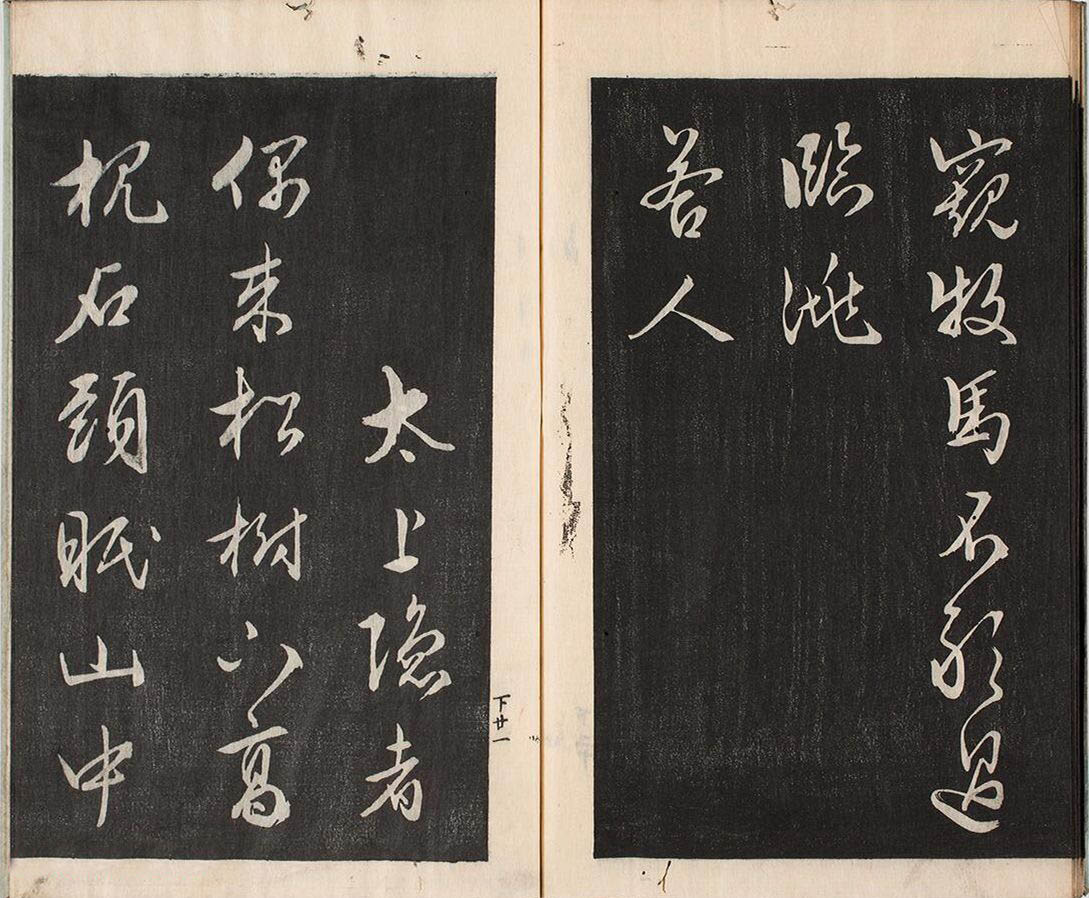 窺牧馬不敢過
臨洮
答人
太上隱者
偶来松樹下高
枕石頭眠山中
下廿一